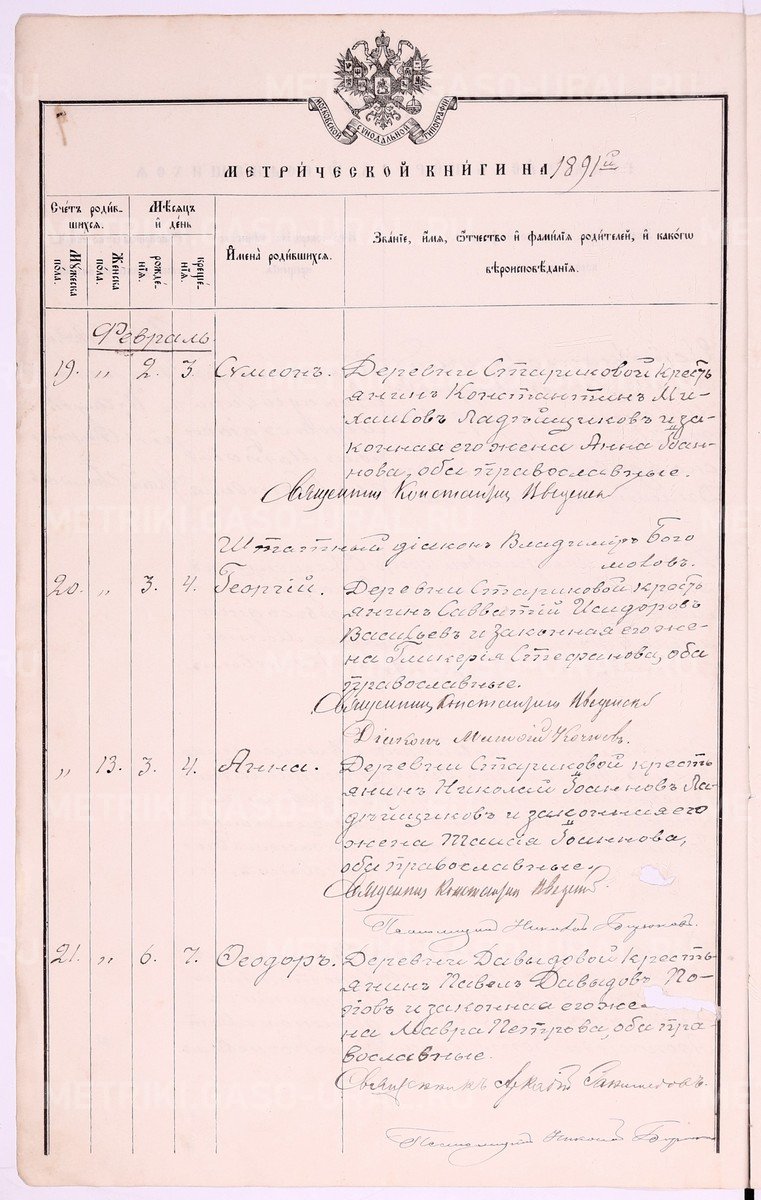 МОСКОВСКОЙ СѴНОДАЛЬНОЙ ТИПОГРАФІИ
МЕТРИ́ЧЕСКОЙ КНИ́ГИ НА 1891й
Сче́тъ роди́в-
шихся.
Мѣ́сяцъ
и҆ де́нь
И҆мена̀ роди́вшихся.
Зва́нїе, и҆́мя, ѻ҆́тчество и҆ фами́лїя роди́телей, и҆ како́гѡ
вѣроисповѣ́данїя.
Мꙋ́жеска
по́ла.
Же́нска
по́ла.
рожде́-
нїя.
креще́-
нїя.
Февраль.
19. „ 2. 3. Сѵмеонъ. Деревни Стариковой кресть
янинъ Константинъ Ми-
хаиловъ Ладѣйщиковъ и за-
конная его жена Анна Іоан-
нова, оба православные.
Священник Константин Введенск
Штатный діаконъ Владиміръ Бого
мовъ.
20. „ 3. 4. Георгій. Деревни Стариковой кресть
янинъ Савватій Исидоровъ
Васильевъ и законная его же-
на Гликерія Стефанова, оба
православные.
Священник Константин Введенск
Діаконъ Матѳій
„ 13. 3. 4. Анна. Деревни Стариковой кресть
янинъ Николай Іоанновъ Ла-
дѣйщиковъ и законная его
жена Таисія Іоаннова,
оба православные.
Священник Константин Введенск
Псаломщикъ Николай
21. „ 6. 7. Ѳеодоръ. Деревни Давыдовой кресть-
янинъ Павелъ Давыдовъ По-
повъ и законная его же-
на Мавра Петрова, оба пра-
вославные.
Священникъ Аркадій
Псаломщикъ Николай